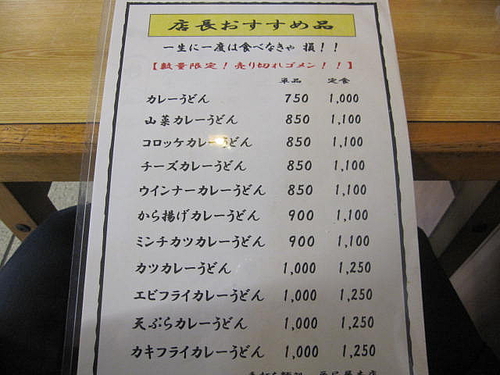 店長おすすめ品
一生に一度は食べなきゃ 損!!
【数量限定!売り切れゴメン!!】
単品 定食
カレーうどん 750 1,000
山菜カレーうどん 850 1,100
コロッケカレーうどん 850 1,100
チーズカレーうどん 850 1,100
ウインナーカレーうどん 850 1,100
から揚げカレーうどん 900 1,100
ミンチカツカレーうどん 900 1,100
カツカレーうどん 1,000 1,250
エビフライカレーうどん 1,000 1,250
天ぷらカレーうどん 1,000 1,250
カキフライカレーうどん 1,000 1,250